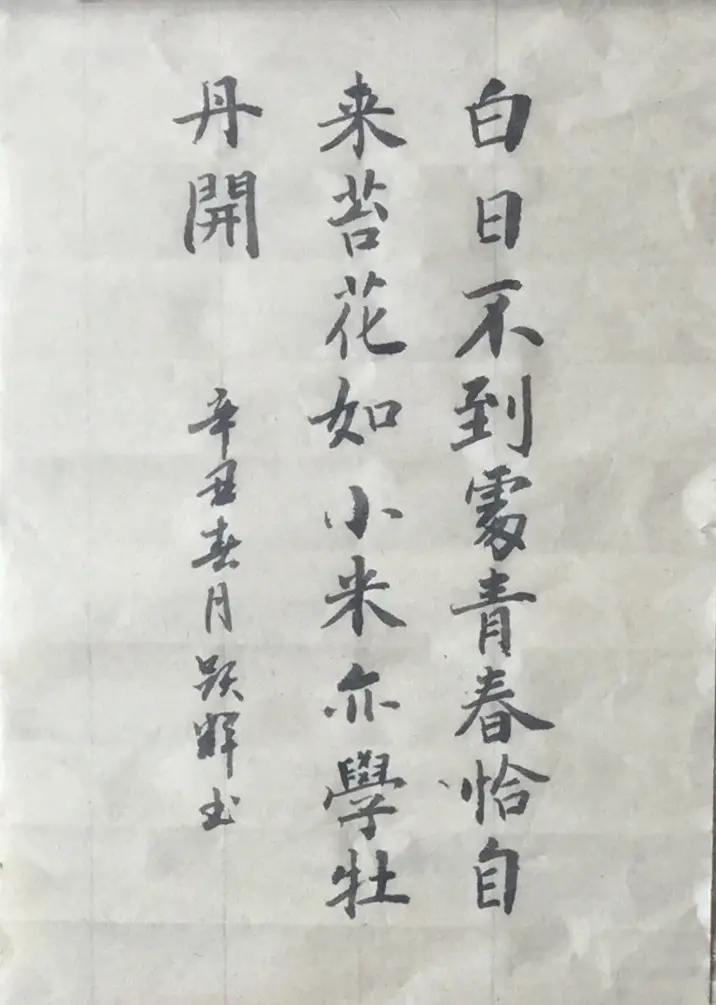 白日不到處青春恰自
来苔花如小米亦學牡
丹開
辛丑春月跃輝书